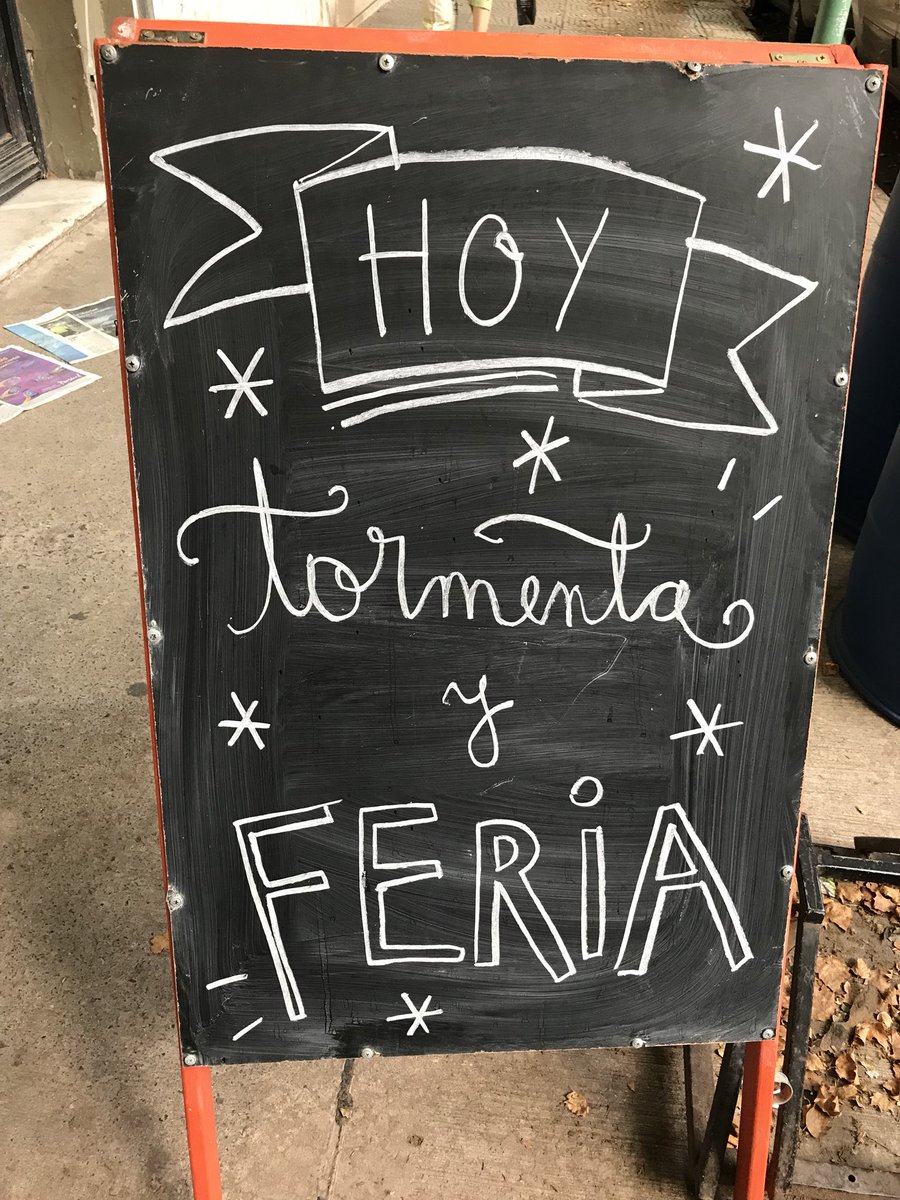 HOY
tormenta
y
FERiA